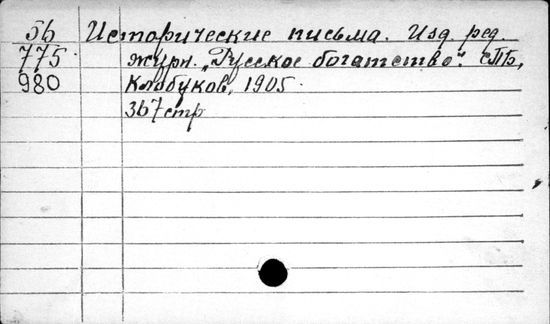 56 Исторические письма. Изд. ред.
775 журн. „Русское богатство". СПБ,
980 Клобуков, 1905.
367 стр